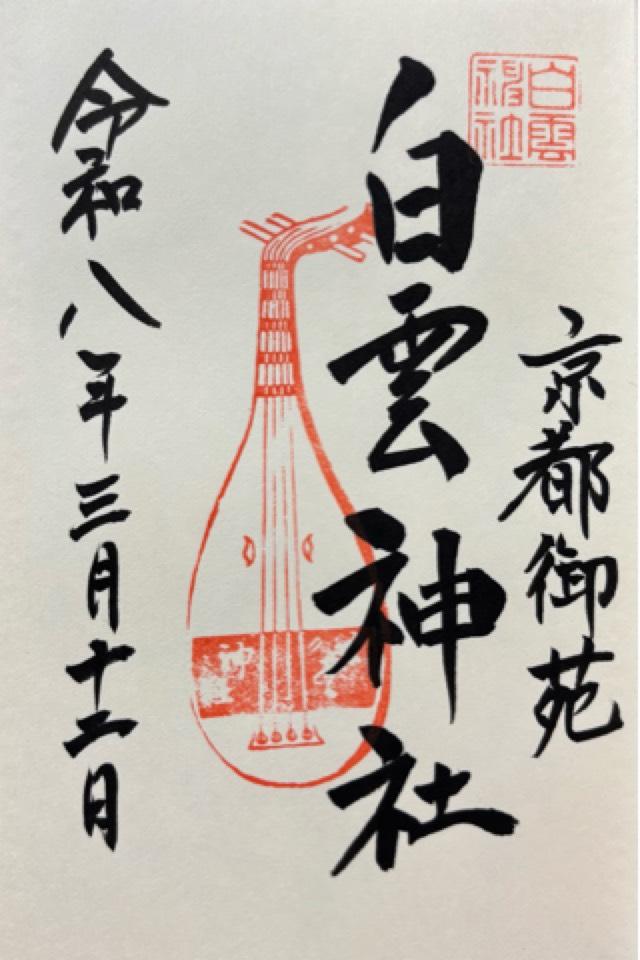 白雲神社
京都御苑
白雲神社
令和八年三月十二日